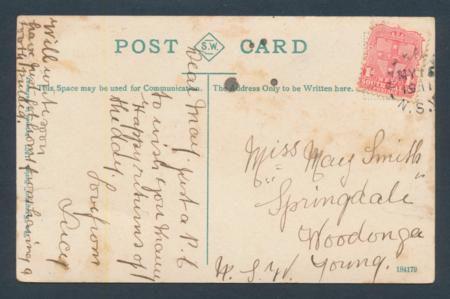 POST S.W. CARD
This Space may be used for Communication.
The Address Only to be Written here.
Dear May. just a P.C
to wish you many
Happy returns of
the day
Love from
Lucy
Will write soon
have just
Miss May Smith
"Springdale"
Woodonga
Young.
N. S. W.
N.S.
184170